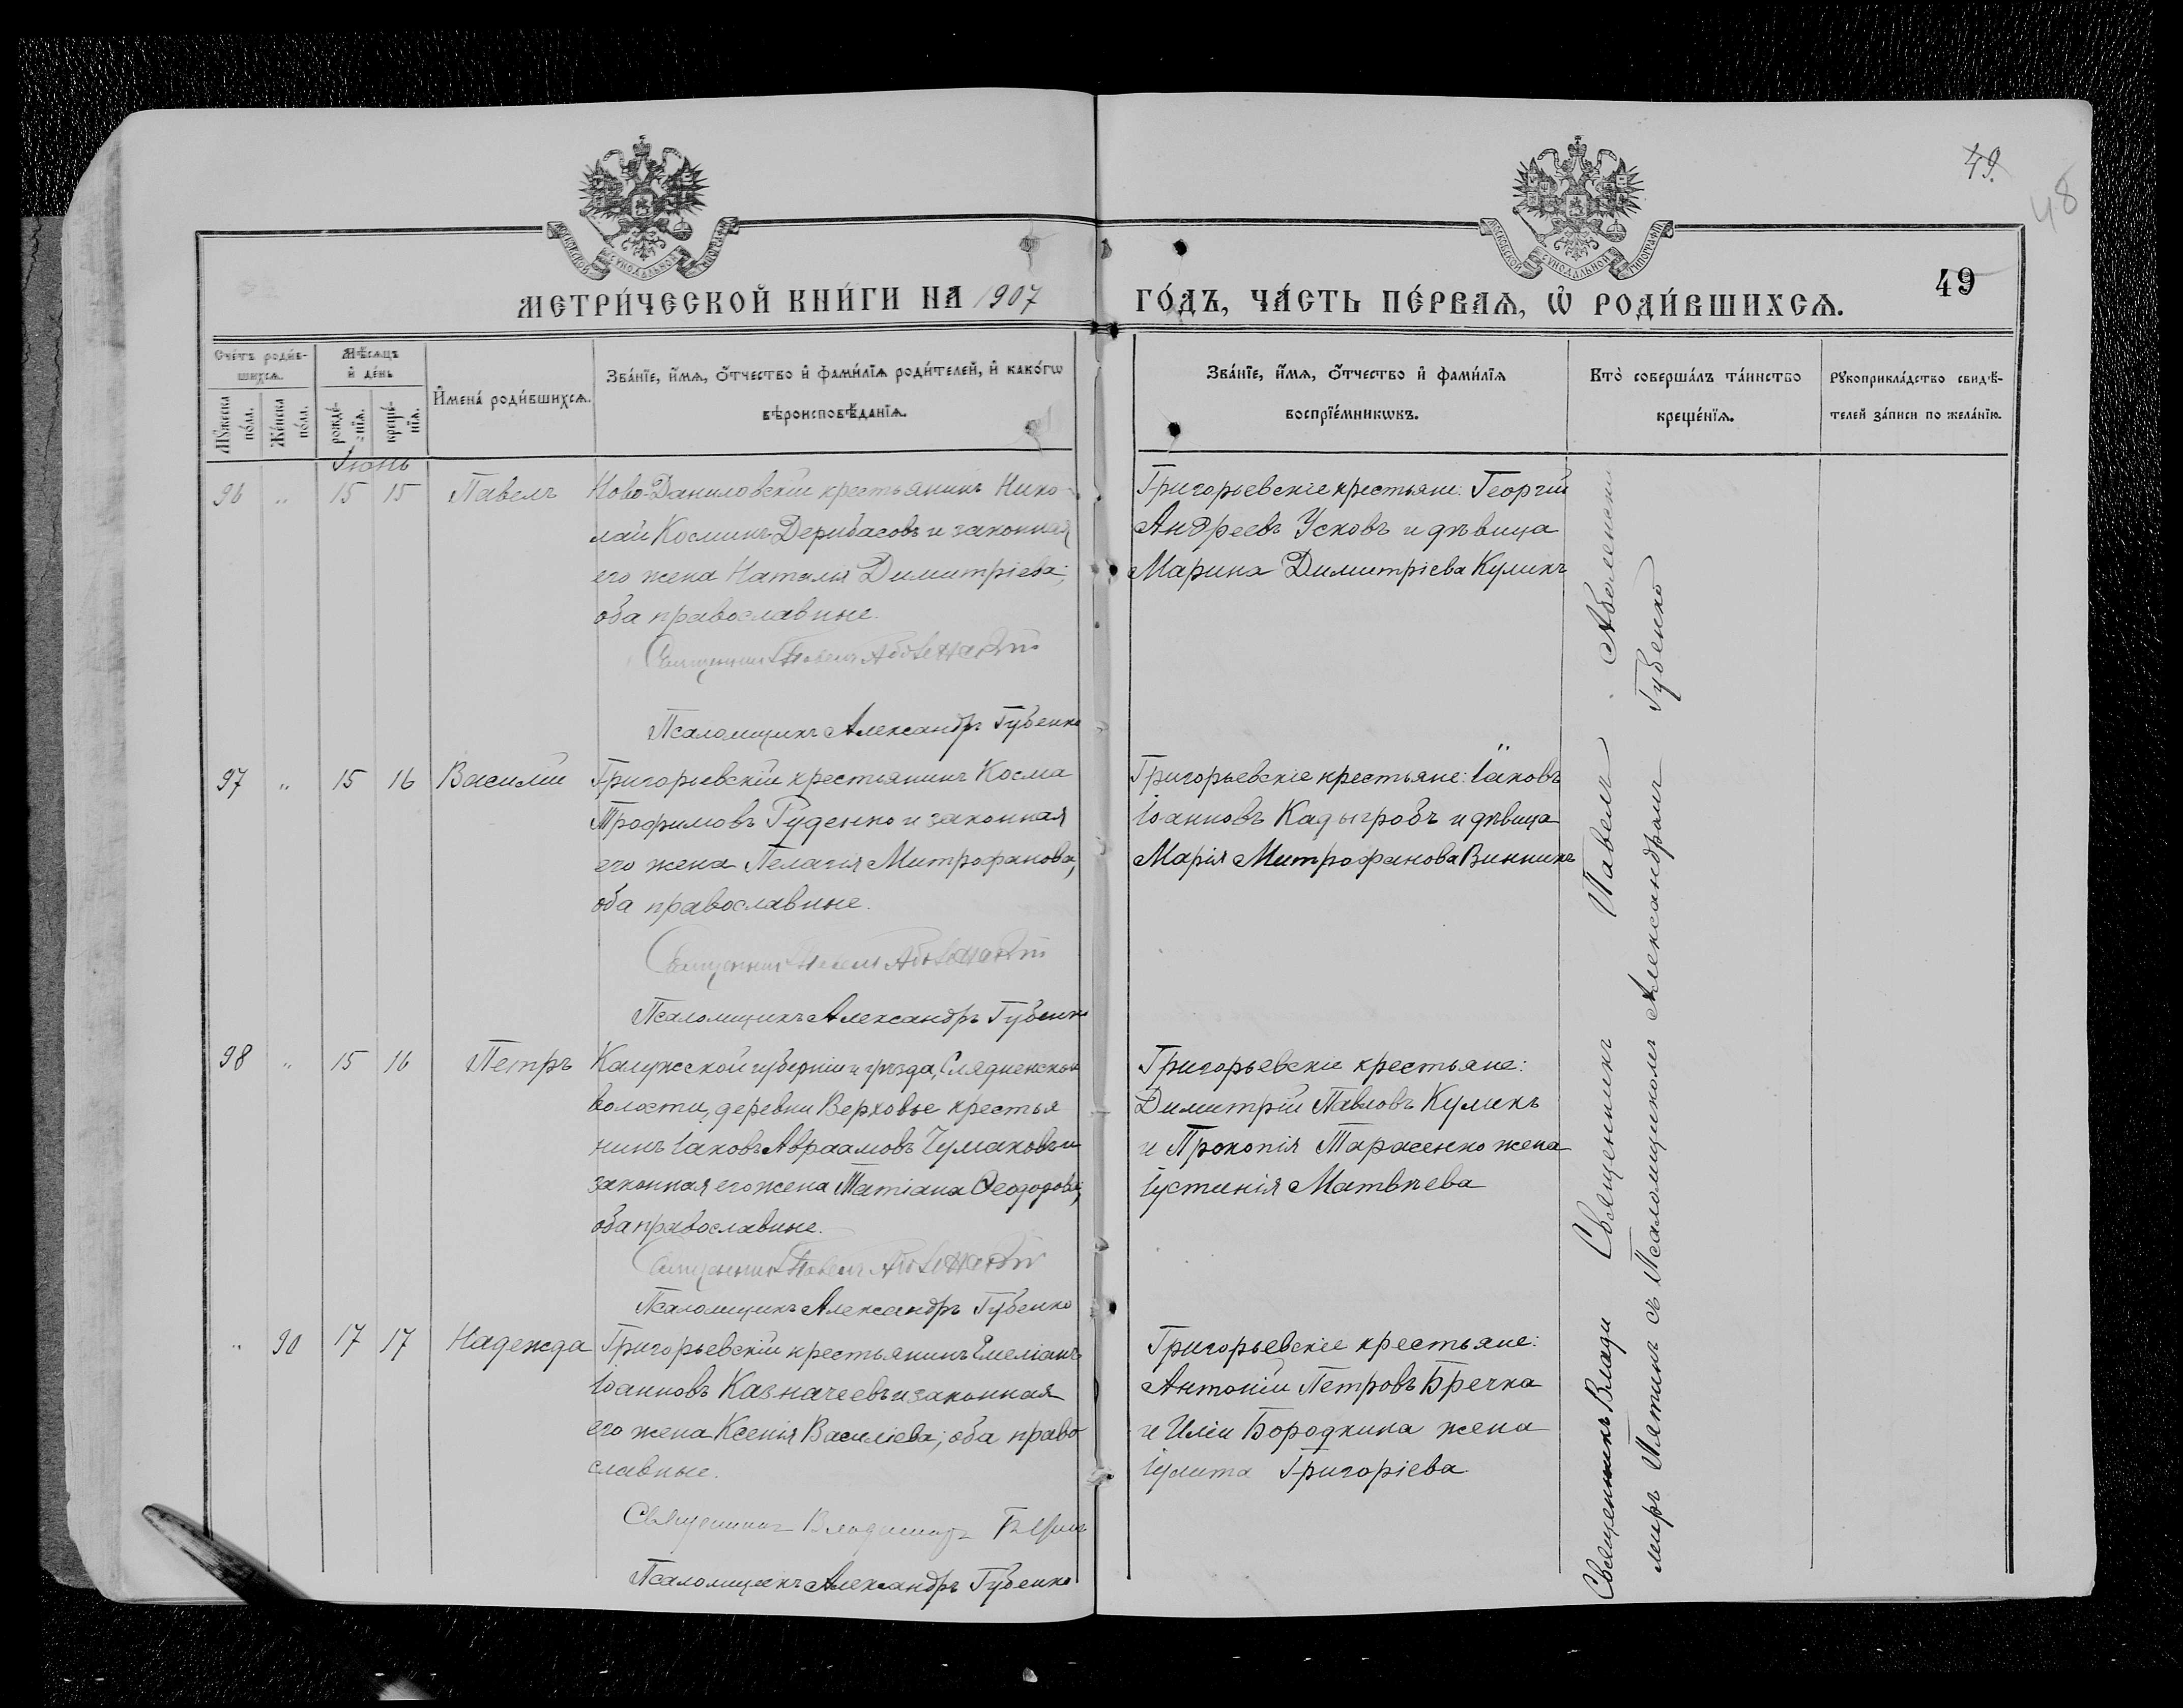 49.
48
МОСКОВСКОЙ СУНОДАЛЬНОЙ ТИПОГРАФІИ
МОСКОВСКОЙ СУНОДАЛЬНОЙ ТИПОГРАФІИ
МЕТРИ́ЧЕСКОЙ КНИ́ГИ НА 1907
ГО́ДЪ, ЧА́СТЬ ПЕ́РВАѦ, Ѡ РОДИ́ВШИХСѦ.
49
Сче́тъ роди́в-
шихсѧ.
Мꙋ́жеска
по́ла.
Же́нска
по́ла.
Мѣ́сѧцъ
и де́нь
рожде́-
нїѧ.
креще́-
нїѧ.
Имена̀ роди́вшихсѧ.
Зва́нїе, и́мѧ, о́тчество и фами́лїѧ роди́телей, и како́гѡ
вѣроисповѣ́данїѧ.
Зва́нїе, и́мѧ, о́тчество и фами́лїѧ
воспрїе́мникѡвъ.
Кто̀ соверша́лъ та́инство
креще́нїѧ.
Рꙋкоприкла́дство свидѣ́-
телей за́писи по жела́нїю.
Іюнь
96 „ 15 15 Павелъ
Ново-Даниловскій крестьянинъ Нико-
лай Косминъ Дерибасовъ и законная
его жена Наталія Димитріева;
оба православные.
Священникъ Павелъ
Псаломщикъ Александръ Губенко
Григорьевскіе крестьяне: Георгій
Андреевъ Усковъ и дѣвица
Марина Димитріева Куликъ
97 „ 15 16 Василій
Григорьевскій крестьянинъ Косма
Трофимовъ Руденко и законная
его жена Пелагія Митрофанова,
оба православные.
Священникъ Павелъ
Псаломщикъ Александръ Губенко
Григорьевскіе крестьяне: Іаковъ
Іоанновъ Кадыгробъ и дѣвица
Марія Митрофанова Винникъ
98 „ 15 16 Петръ
Калужской губерніи и уѣзда,
волости, деревни Верховье крестья
нинъ Іаковъ Авраамовъ Чумаковъ и
законная его жена Татіана Ѳеодорова,
оба православные.
Священникъ Павелъ
Псаломщикъ Александръ Губенко
Григорьевскіе крестьяне:
Димитрій Павловъ Куликъ
и Прокопія Тарасенко жена
Іустинія Матвѣева
„ 90 17 17 Надежда
Григорьевскій крестьянинъ Емеліанъ
Іоанновъ Казначеевъ и законная
его жена Ксенія Василіева; оба право
славные.
Священникъ Владимиръ
Псаломщикъ Александръ Губенко
Григорьевскіе крестьяне:
Антоній Петровъ Бречка
и Иліи Бородкина жена
Іулита Григоріева
Священникъ Влади Священникъ Павелъ
миръ Пятинъ съ Псаломщикомъ Александромъ Губенко